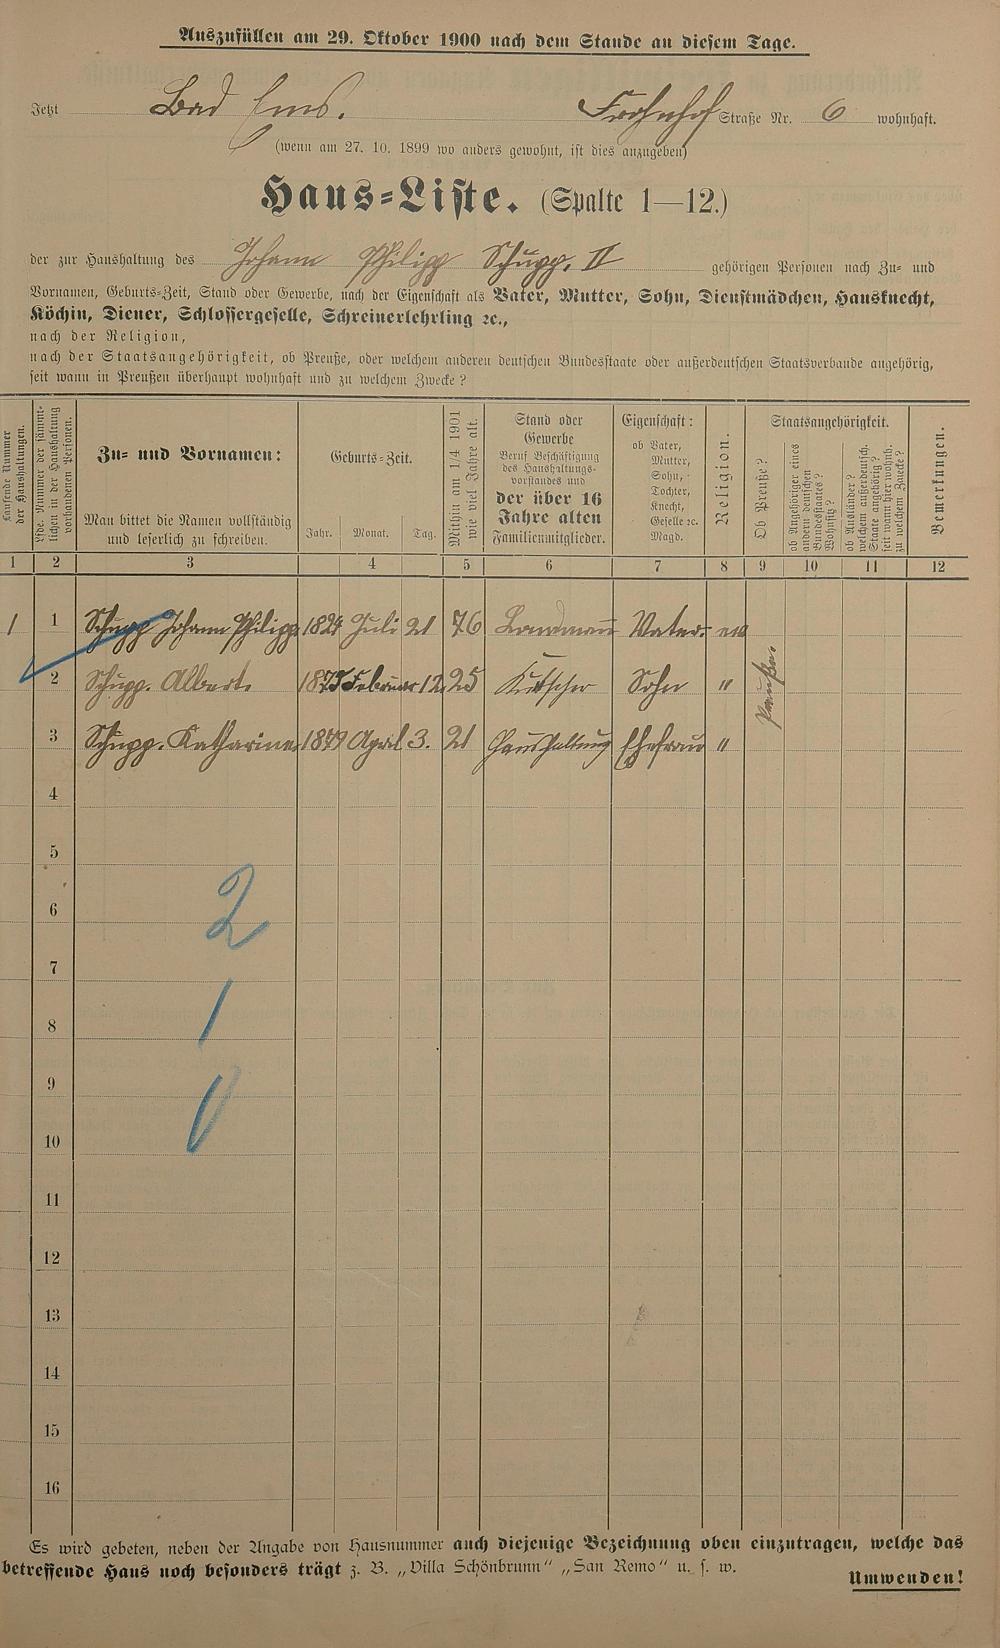 Auszufüllen am 29. Oktober 1900 nach dem Stande an diesem Tage.
Jetzt Bad Ems. Frohnhof Straße Nr. 6 wohnhaft.
(wenn am 27. 10. 1899 wo anders gewohnt, ist dies anzugeben)
Haus-Liste. (Spalte 1—12.)
der zur Haushaltung des Johann Philipp Schupp. II gehörigen Personen nach Zu- und
Vornamen, Geburts-Zeit, Stand oder Gewerbe, nach der Eigenschaft als Vater, Mutter, Sohn, Dienstmädchen, Hausknecht,
Köchin, Diener, Schlossergeselle, Schreinerlehrling ꝛc.,
nach der Religion,
nach der Staatsangehörigkeit, ob Preuße, oder welchem anderen deutschen Bundesstaate oder außerdeutschen Staatsverbande angehörig,
seit wann in Preußen überhaupt wohnhaft und zu welchem Zwecke?
Laufende Nummer
der Haushaltungen.
Lfde. Nummer der sämmt-
lichen in der Haushaltung
vorhandenen Personen.
Zu- und Vornamen:
Man bittet die Namen vollständig
und leserlich zu schreiben.
Geburts-Zeit.
Jahr. Monat. Tag.
Mithin am 1/4 1901
wie viel Jahre alt.
Stand oder
Gewerbe
Beruf Beschäftigung
des Haushaltungs-
vorstandes und
der über 16
Jahre alten
Familienmitglieder.
Eigenschaft:
ob Vater,
Mutter,
Sohn,
Tochter,
Knecht,
Geselle ꝛc.
Magd.
Religion.
Staatsangehörigkeit.
Ob Preuße?
ob Angehöriger eines
andern deutschen
Bundesstaates?
Wohnsitz?
ob Ausländer?
welchem außerdeutsch.
Staate angehörig?
seit wann hier wohnh.
zu welchem Zwecke?
Bemerkungen.
1 2 3 4 5 6 7 8 9 10 11 12
1 1 Schupp Johann Philipp 1824 Juli 21 76 Landmann Vater. ev
2 Schupp. Albert. 1875 Februar 12. 25 Kutscher Sohn "
Preuße.
3 Schupp. Katharina. 1879 April 3. 21 Haushaltung Ehefrau "
4
5
6
2
7
8
1
9
10
0
11
12
13
14
15
16
Es wird gebeten, neben der Angabe von Hausnummer auch diejenige Bezeichnung oben einzutragen, welche das
betreffende Haus noch besonders trägt z. B. „Villa Schönbrunn“ „San Remo“ u. s. w.
Umwenden!